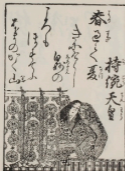 持統天皇
春すぎて夏
きにけらし
白妙の
ころも
ほすてふ
あまのかく山